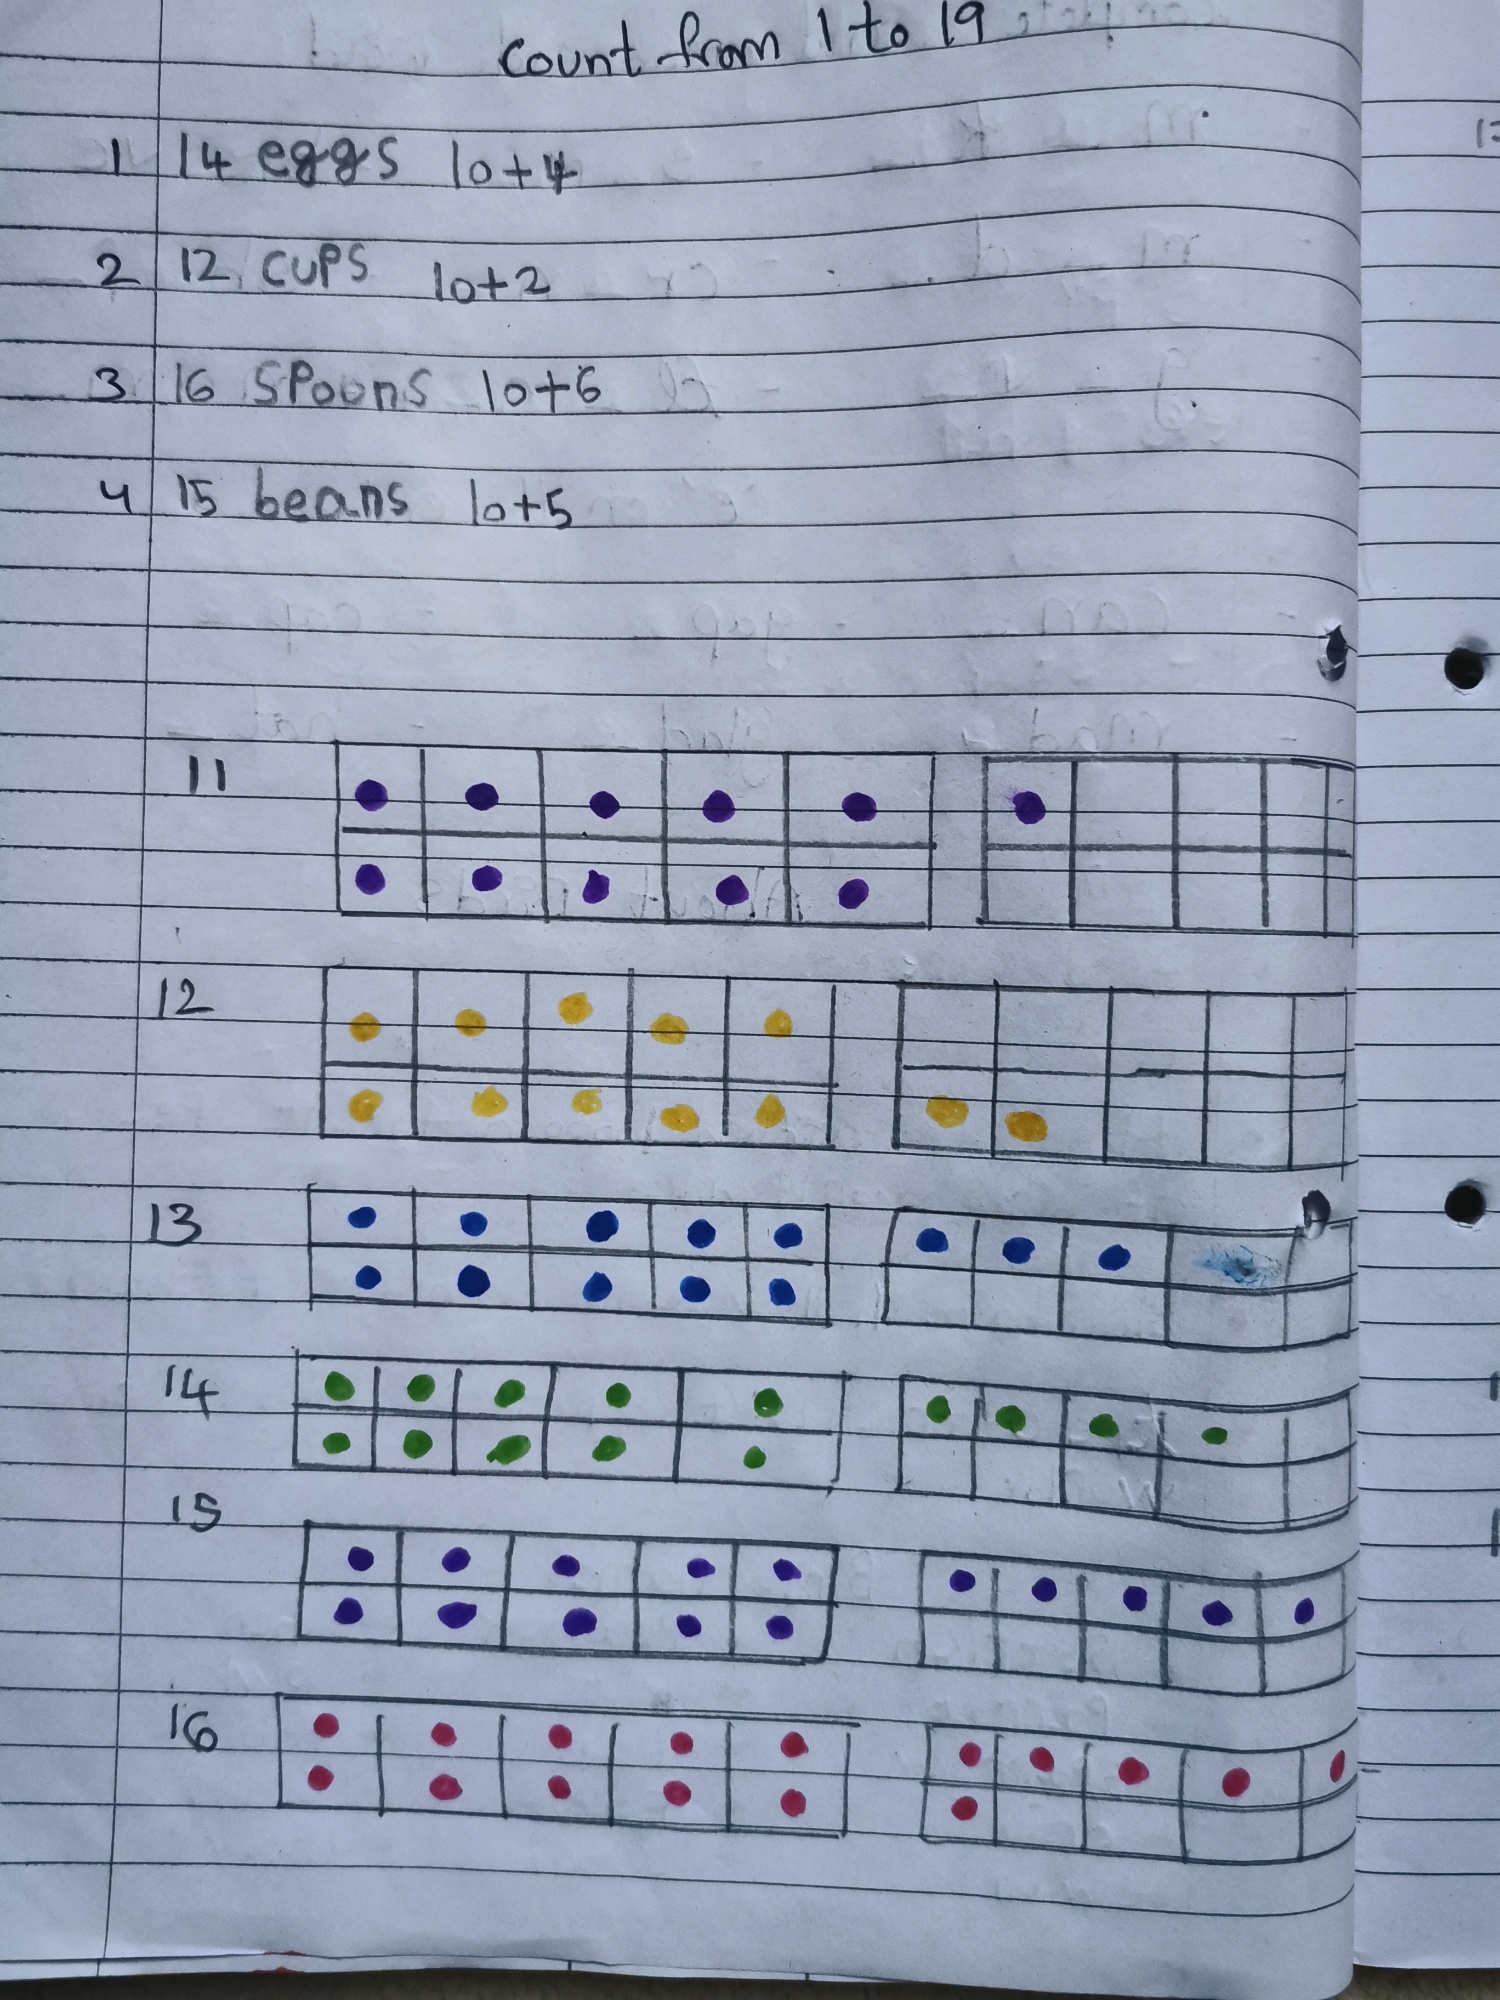 Count from 1 to 19
1 14 eggs 10+4
2 12 cups 10+2
3 16 spoons 10+6
4 15 beans 10+5
11
12
13
14
15
16